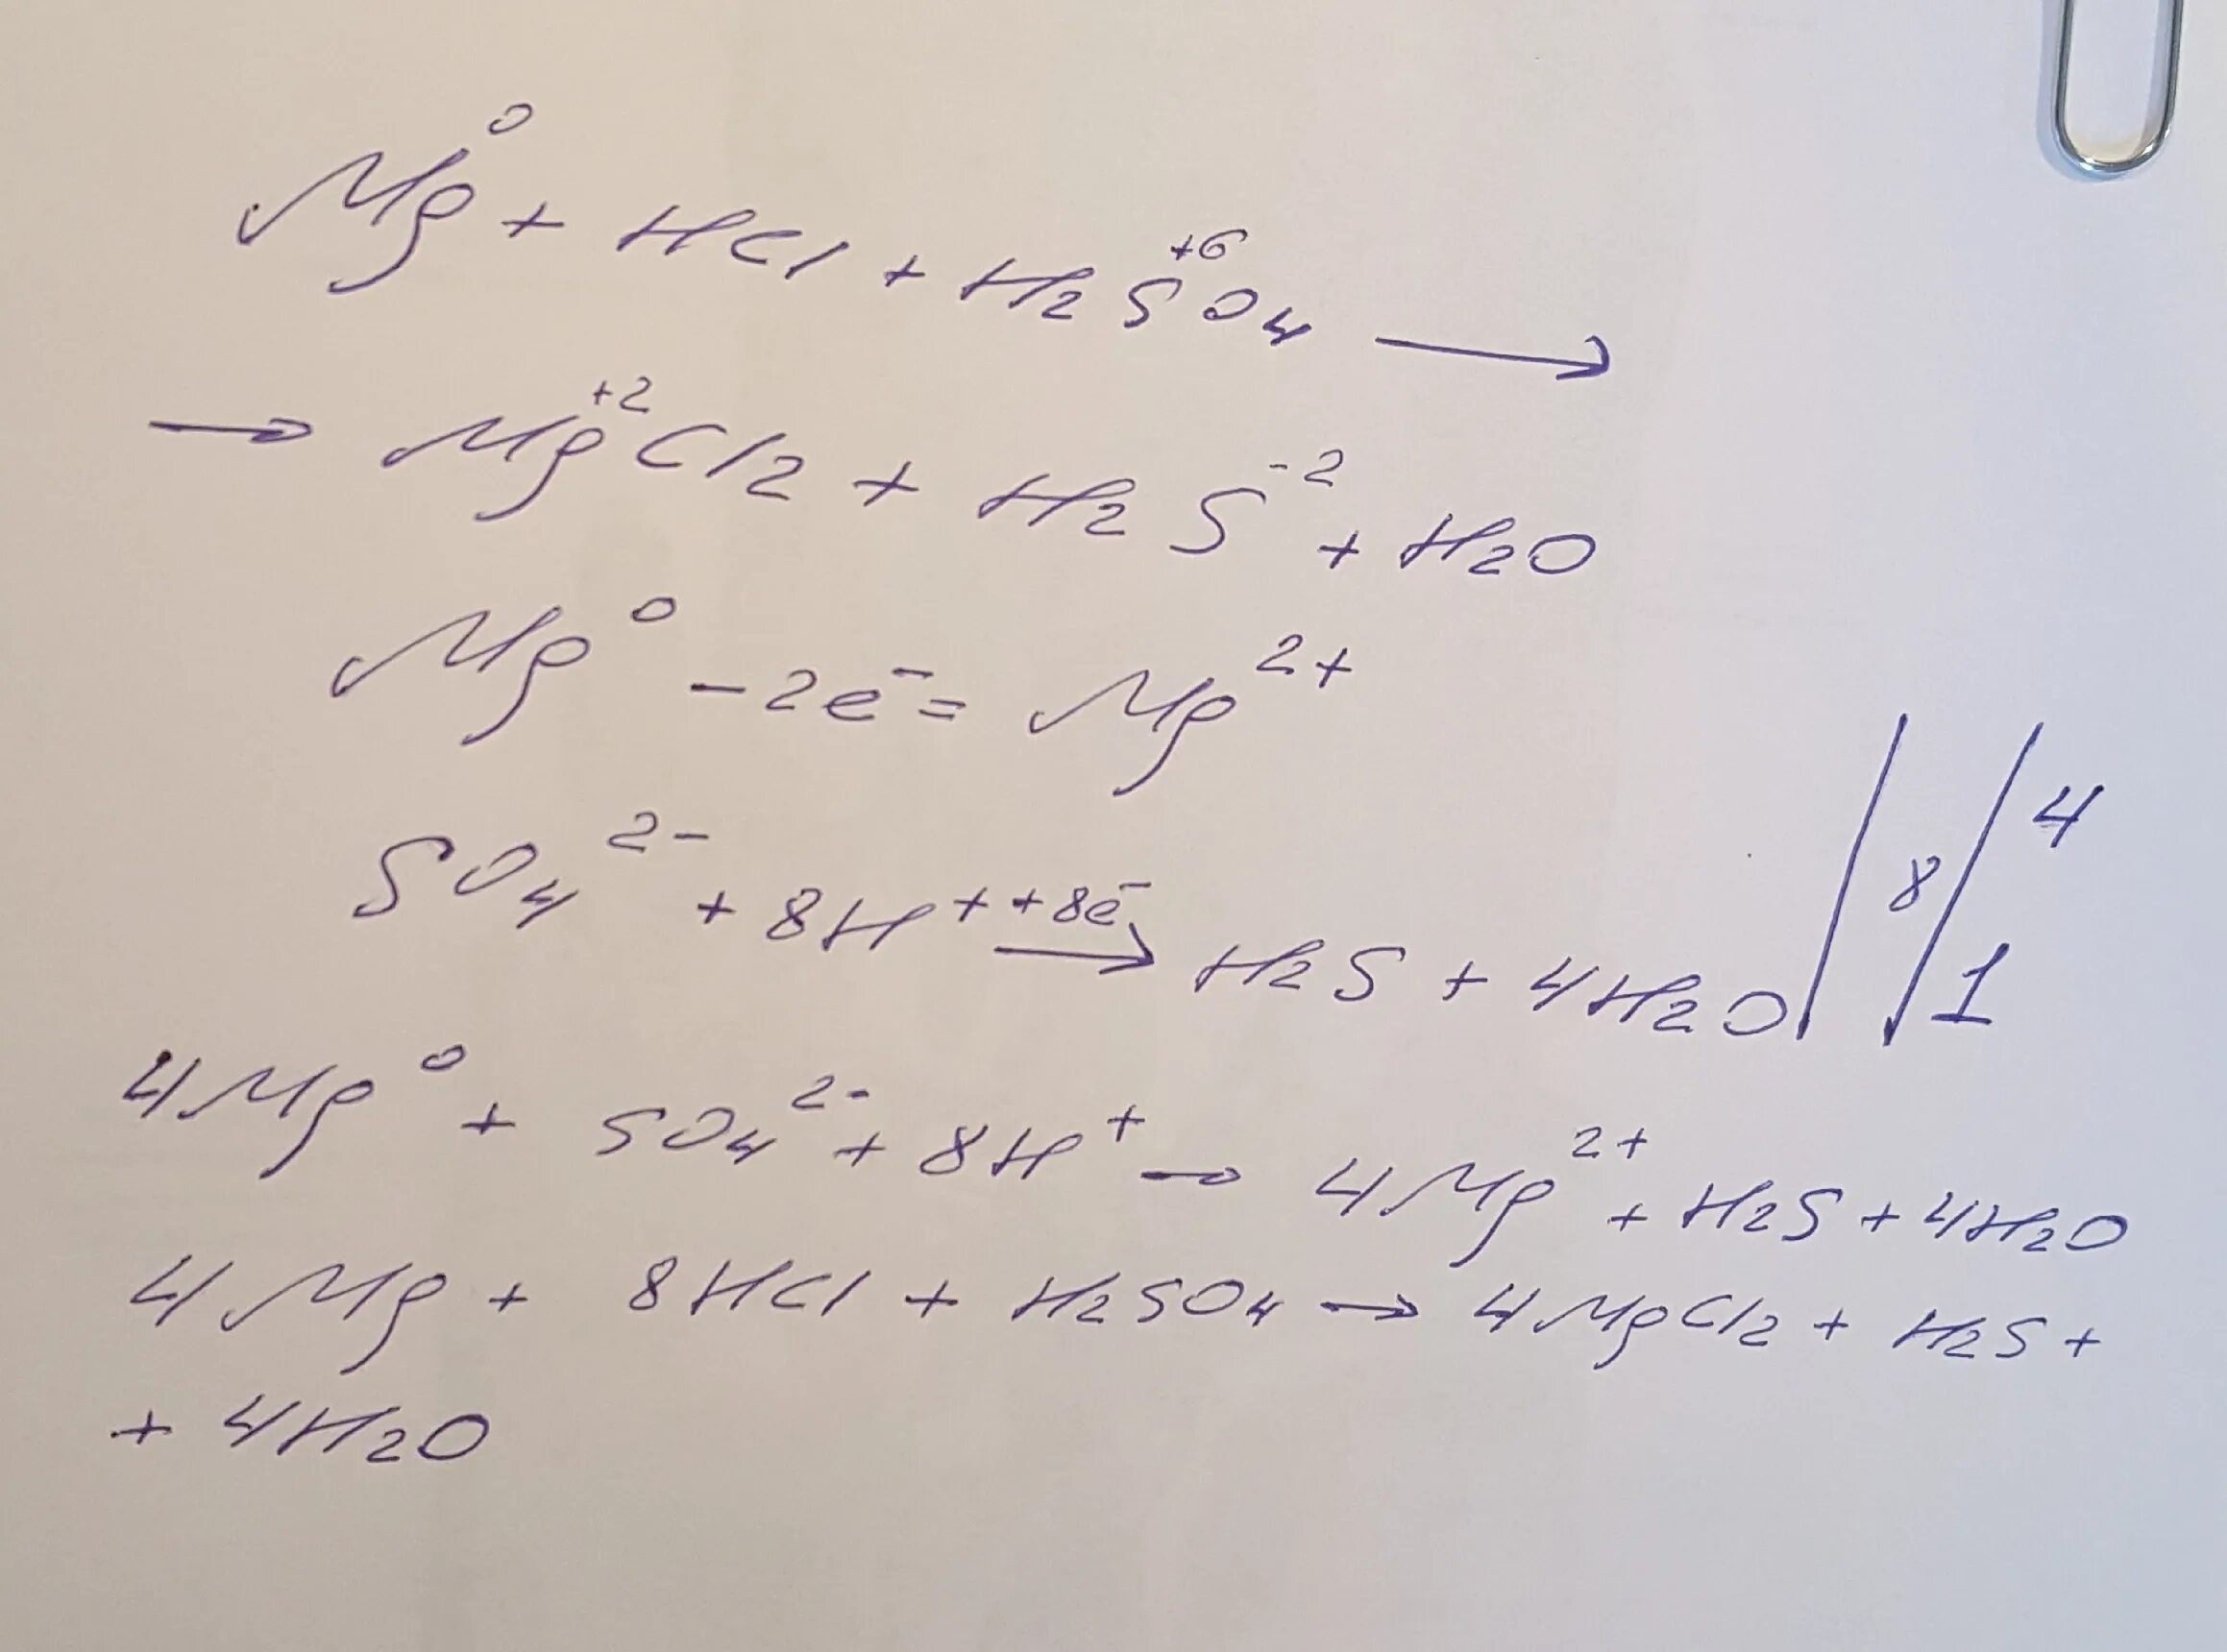 Mg⁰ + HCl + H₂S⁺⁶O₄ →
→ Mg⁺²Cl₂ + H₂S⁻² + H₂O
Mg⁰ - 2e⁻ = Mg²⁺ | | 4
SO₄²⁻ + 8H⁺ +8e⁻ → H₂S + 4H₂O | 8 | 1
4Mg⁰ + SO₄²⁻ + 8H⁺ → 4Mg²⁺ + H₂S + 4H₂O
4Mg + 8HCl + H₂SO₄ → 4MgCl₂ + H₂S +
+ 4H₂O